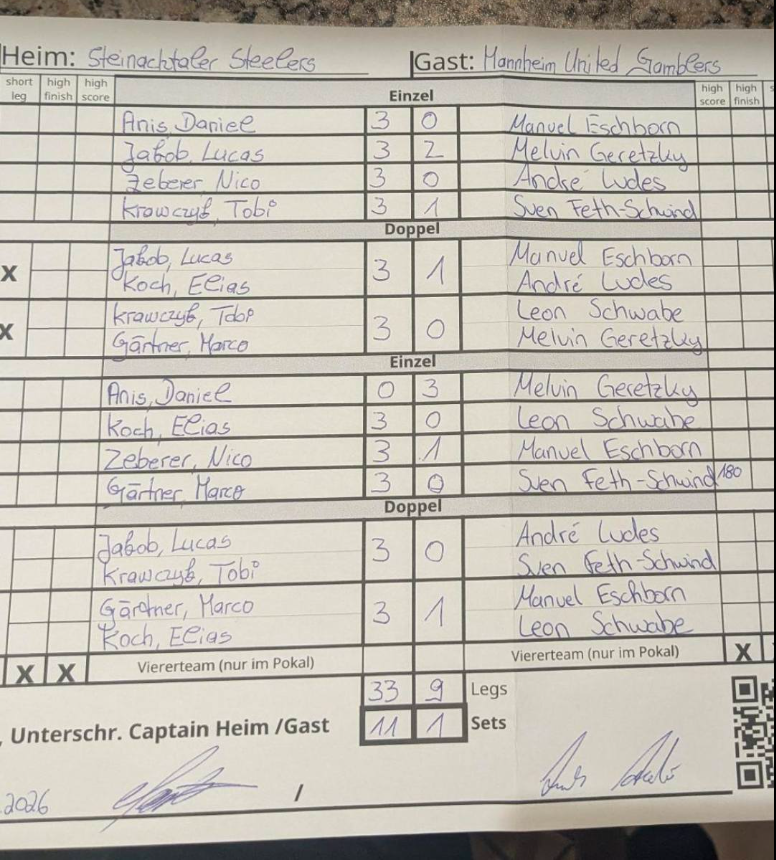 Heim: Steinachtaler Steelers Gast: Mannheim United Gamblers
short leg high finish high score Einzel high score high finish
Anis, Daniel 3 0 Manuel Eschborn
Jakob, Lucas 3 2 Melvin Geretzky
Zeberer, Nico 3 0 André Ludes
Krawczyk, Tobi 3 1 Sven Feth-Schwind
Doppel
Jakob, Lucas Manuel Eschborn
X 3 1
Koch, Elias André Ludes
Krawczyk, Tobi Leon Schwabe
X 3 0
Gärtner, Marco Melvin Geretzky
Einzel
Anis, Daniel 0 3 Melvin Geretzky
Koch, Elias 3 0 Leon Schwabe
Zeberer, Nico 3 1 Manuel Eschborn
Gärtner, Marco 3 0 Sven Feth-Schwind 180
Doppel
Jakob, Lucas André Ludes
3 0
Krawczyk, Tobi Sven Feth-Schwind
Gärtner, Marco Manuel Eschborn
3 1
Koch, Elias Leon Schwabe
X X Viererteam (nur im Pokal) Viererteam (nur im Pokal) X
33 9 Legs
, Unterschr. Captain Heim /Gast 11 1 Sets
.2026 /